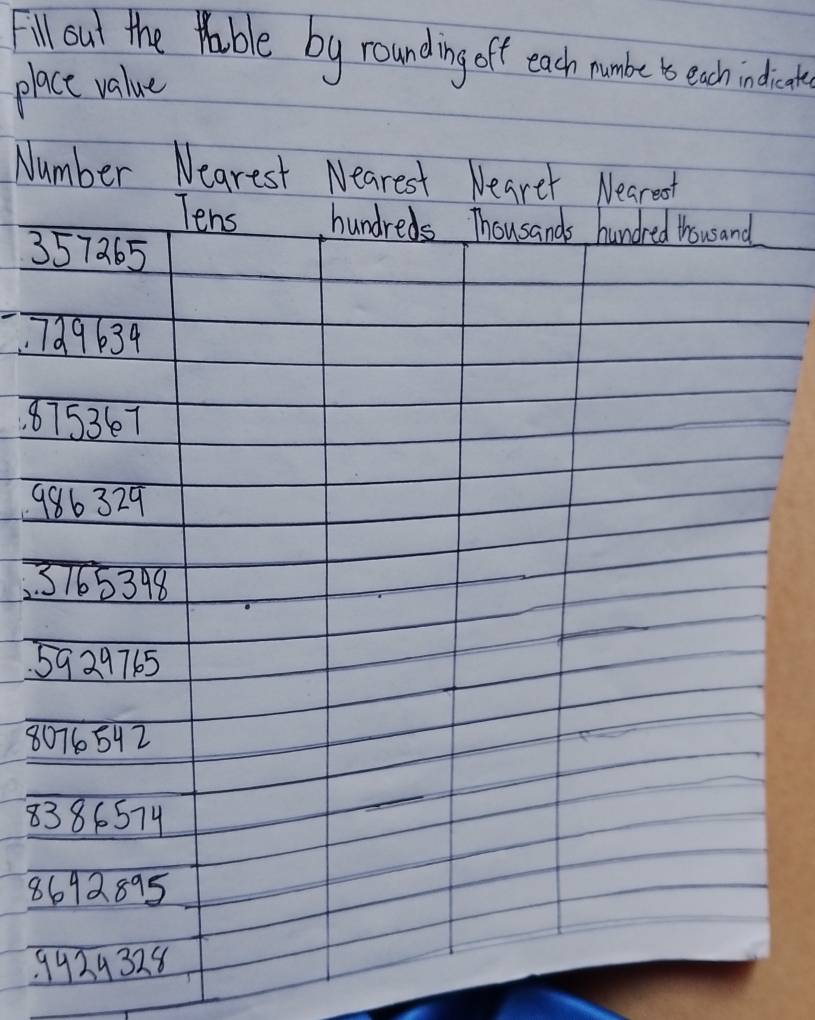 Fill out the table by rounding off each numbe to each indicated
place value
Number Nearest Nearest Nearet Nearest
Tens hundreds Thousands hundred thousand
357265
729634
875367
986329
3765398
5929765
8076542
8386574
8692895
9424328